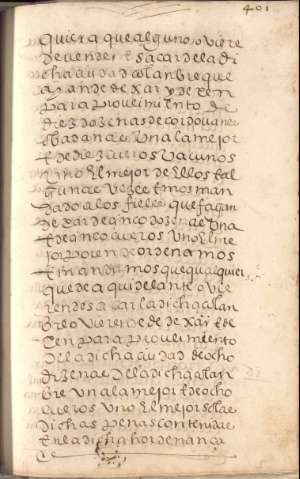 401
quiera que alguno oviere
de vender e sacar de la di
cha ciudad colanbre que
ayan de dexar y dexen
para proveimiento de
diez dozenas de cordovanes
e badanas una la mejor
e de diez cueros vacunos
uno el mejor de ellos e al
gunas vezes emos man
dado a los fieles que fagan
dexar de cinco dozenas una
e de cinco cueros uno el me
jor por ende ordenamos
e mandamos que qualquier
que de aqui delante ovie
ren de sacar la dicha colan
bre oviere de dexar e de
xen para proveimiento
de la dicha ciudad de ocho
dozenas de la dicha colan
bre una la mejor e de ocho
cueros uno el mejor so las
dichas penas contenidas
en la dicha hordenança